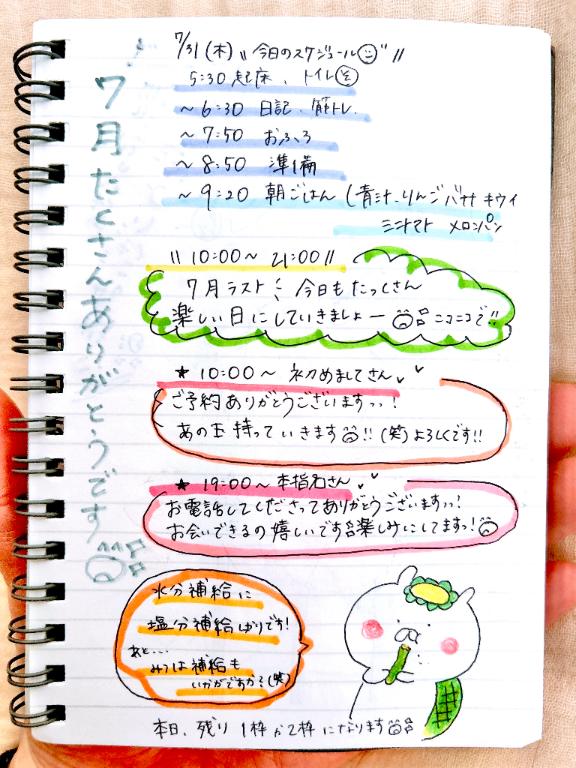 7月たくさんありがとうです
7/31(木) "今日のスケジュール"
5:30 起床、トイレ
~6:30 日記、筋トレ
~7:50 おふろ
~8:50 準備
~9:20 朝ごはん(青汁、りんご バナナ キウイ
ミニトマト メロンパン
"10:00~21:00"
7月ラスト! 今日もたっくさん
楽しい日にしていきましょー ニコニコで!!
★10:00~初めましてさん
ご予約ありがとうございますっっ!
あの玉持っていきます!!(笑)よろしくです!!
★19:00~本指名さん
お電話してくださってありがとうございますっっ!
お会いできるの嬉しいです 楽しみにしてますっ!
水分補給に
塩分補給ばりです!
あと...
みつは補給も
いかがですか?(笑)
本日、残り 1枠か2枠になります